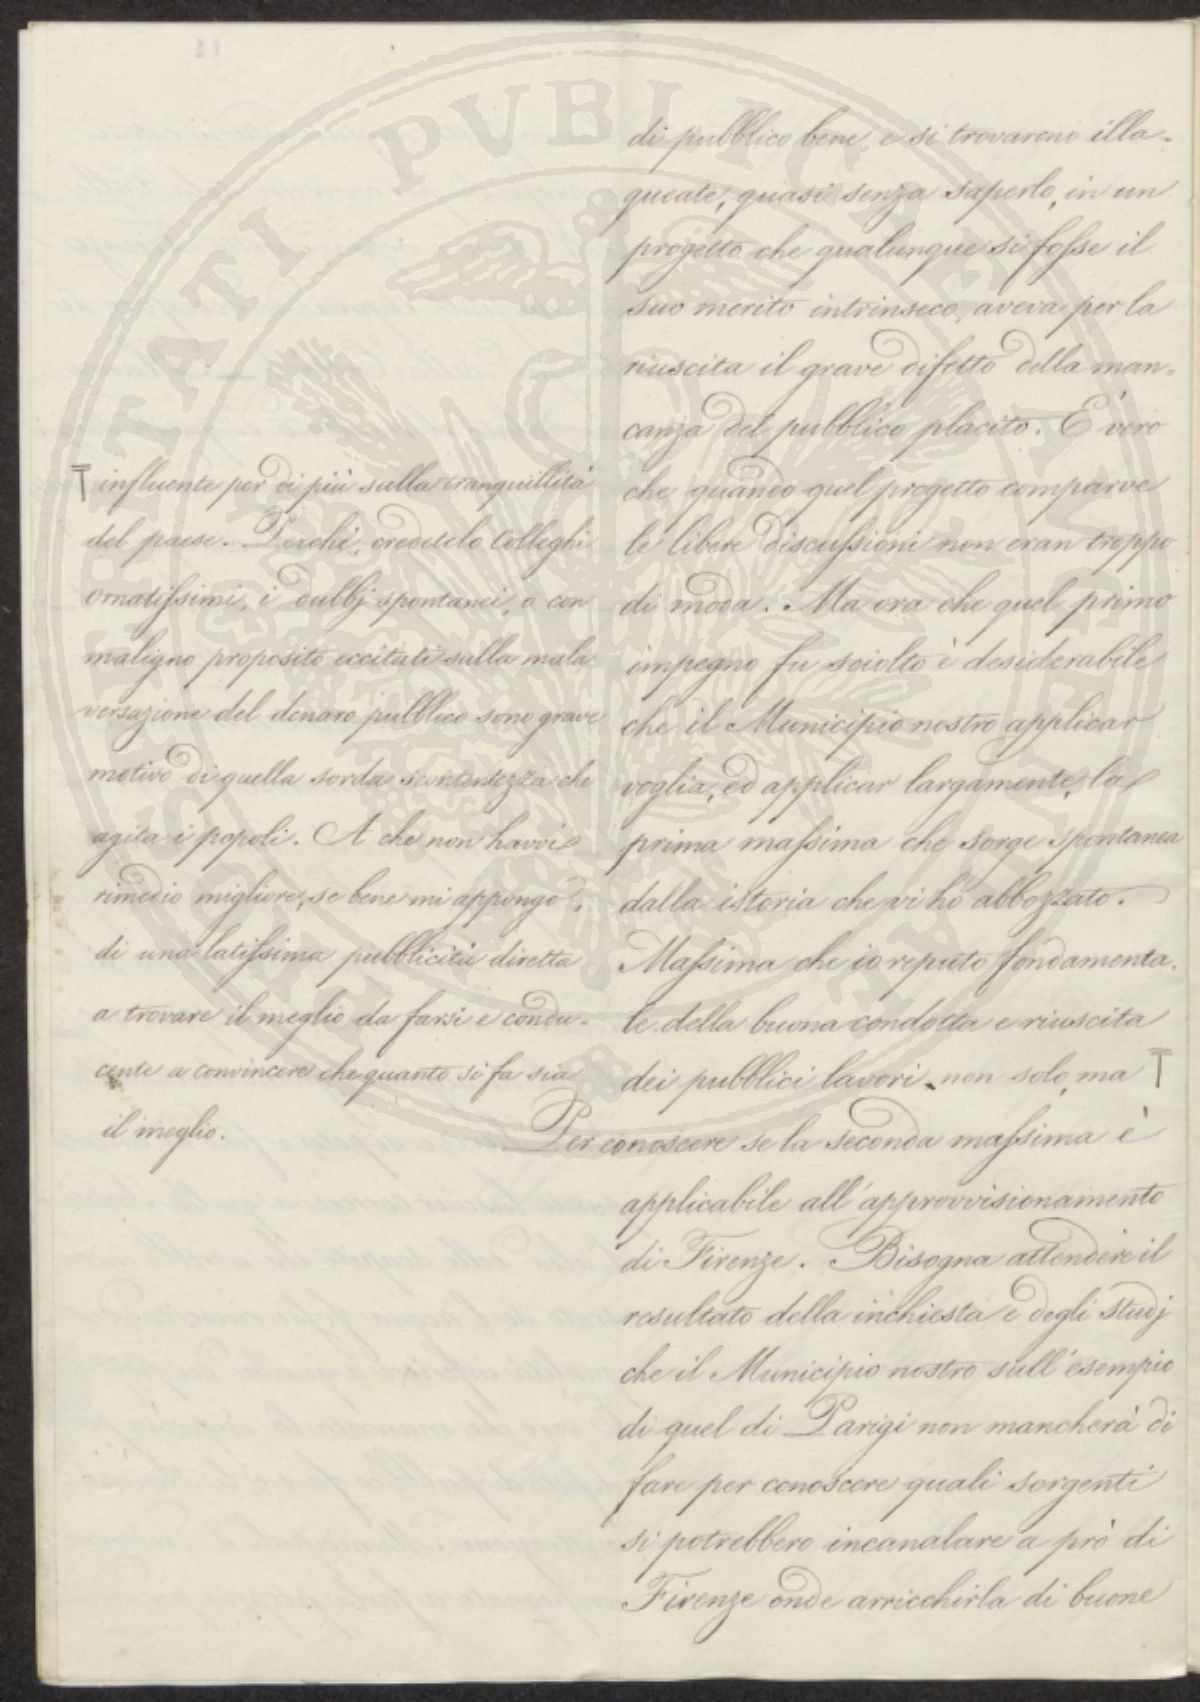 di pubblico bene, e si trovarono illa-
queate, quasi senza saperlo, in un
progetto che qualunque si fosse il
suo merito intrinseco, aveva per la
riuscita il grave difetto della man-
canza del pubblico placito. È vero
che quando quel progetto comparve
le libere discussioni non eran troppo
di moda. Ma ora che quel primo
impegno fu sciolto è desiderabile
che il Municipio nostro applicar
voglia, ed applicar largamente, la
prima massima che sorge spontanea
dalla istoria che vi ho abbozzato.
Massima che io reputo fondamenta-
le della buona condotta e riuscita
dei pubblici lavori non solo, ma T
T influente per di più sulla tranquillità
del paese. Perchè, credetelo Colleghi
Ornatissimi, i dubbj spontanei, o con
maligno proposito eccitati sulla mala
versazione del denaro pubblico sono grave
motivo di quella sorda scontentezza che
agita i popoli. A che non havvi
rimedio migliore, se bene mi appongo,
di una latissima pubblicità diretta
a trovare il meglio da farsi e condu-
cente a convincere che quanto si fa sia
il meglio.
Per conoscere se la seconda massima è
applicabile all'approvvisionamento
di Firenze. Bisogna attendere il
resultato della inchiesta e degli studj
che il Municipio nostro sull'esempio
di quel di Parigi non mancherà di
fare per conoscere quali sorgenti
si potrebbero incanalare a prò di
Firenze onde arricchirla di buone